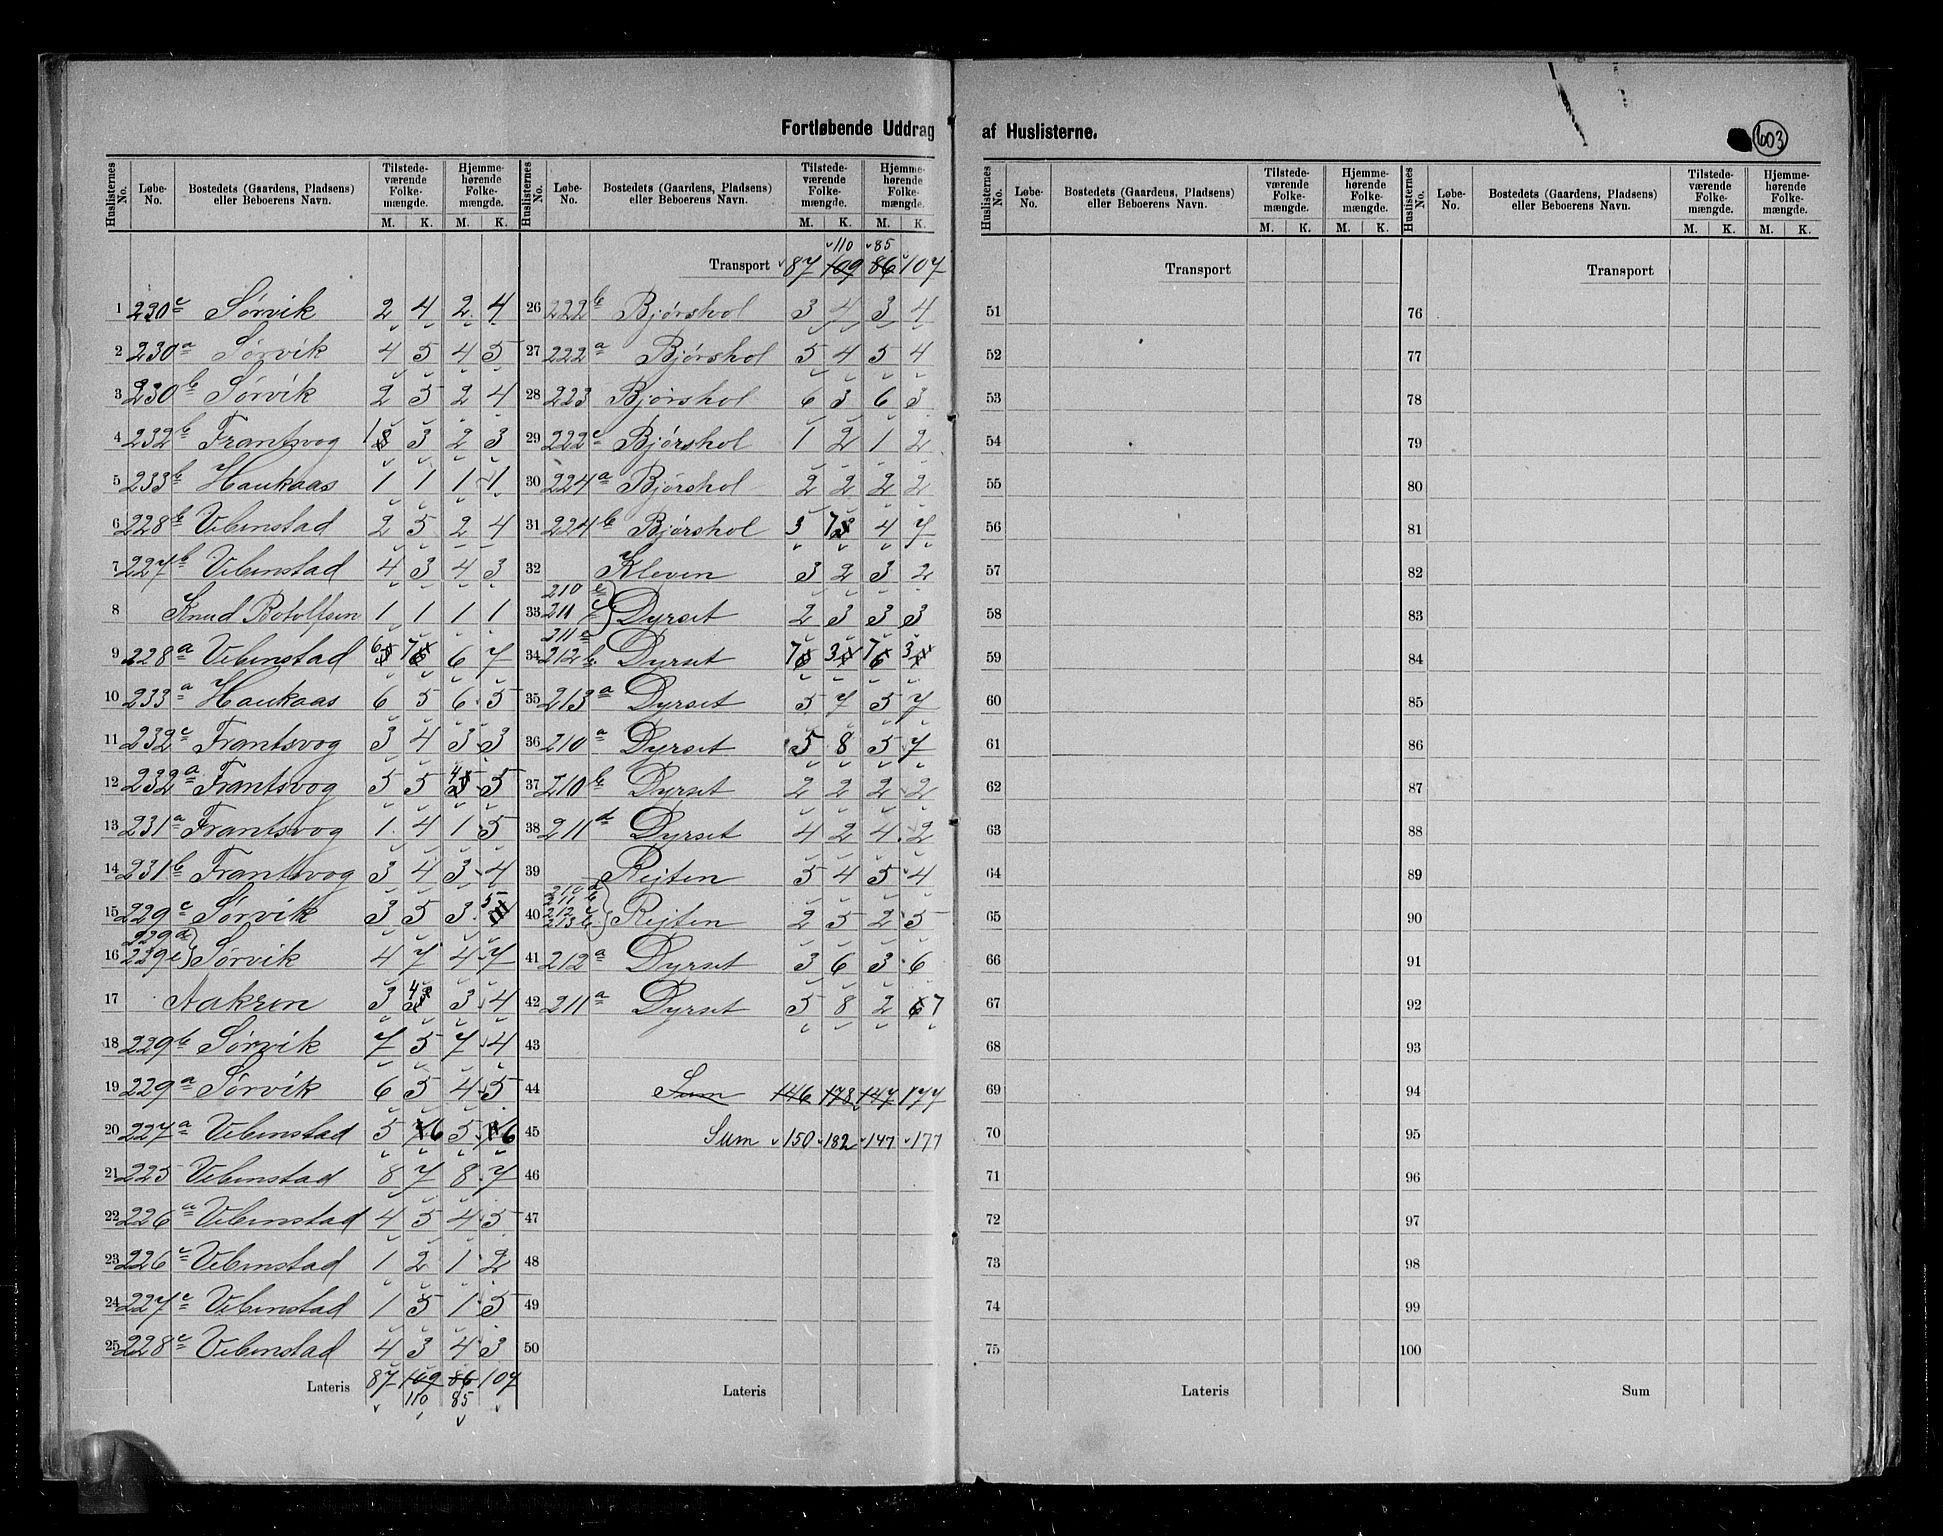 Fortløbende Uddrag af Huslisterne.
603
Huslisternes No. Løbe-No. Bostedets (Gaardens, Pladsens) eller Beboerens Navn. Tilstedeværende Folkemængde. M. K. Hjemmehørende Folkemængde. M. K.
1 230c Sørvik 2 4 2 4
2 230a Sørvik 4 5 4 5
3 230b Sørvik 2 5 2 4
4 232b Frantsvog 1 3 2 3
5 233b Haukaas 1 1 1 1
6 228b Vibenstad 2 5 2 4
7 227b Vibenstad 4 3 4 3
8 Knud Botolfsen 1 1 1 1
9 228a Vibenstad 6 7 6 7
10 233a Haukaas 6 5 6 5
11 232c Frantsvog 3 4 3 3
12 232a Frantsvog 5 5 4 5
13 231a Frantsvog 1 4 1 5
14 231b Frantsvog 3 4 3 4
15 229c Sørvik 3 5 3 5
16 229d 239e Sørvik 4 7 4 7
17 Aakren 3 4 3 4
18 229b Sørvik 7 5 7 4
19 229a Sørvik 6 5 4 5
20 227a Vibenstad 5 6 5 6
21 225 Vibenstad 8 7 8 7
22 226a Vibenstad 4 5 4 5
23 226c Vibenstad 1 2 1 2
24 227c Vibenstad 1 5 1 5
25 228c Vibenstad 4 3 4 3
Lateris 87 109 86 107
110 85
Huslisternes No. Løbe-No. Bostedets (Gaardens, Pladsens) eller Beboerens Navn. Tilstedeværende Folkemængde. M. K. Hjemmehørende Folkemængde. M. K.
110 85
Transport 87 109 86 107
26 222b Bjørshol 3 4 3 4
27 222a Bjørshol 5 4 5 4
28 223 Bjørshol 6 3 6 3
29 222c Bjørshol 1 2 1 2
30 224a Bjørshol 2 2 2 2
31 224b Bjørshol 3 7 4 7
32 Kleven 3 2 3 2
33 210e 211c Dyrset 2 3 3 3
34 211e 212b Dyrset 7 3 7 3
35 213a Dyrset 5 7 5 7
36 210a Dyrset 5 8 5 7
37 210b Dyrset 2 2 2 2
38 211d Dyrset 4 2 4 2
39 Rejten 5 4 5 4
40 210d 211b 212c 213b Rejten 2 5 2 5
41 212a Dyrset 3 6 3 6
42 211a Dyrset 5 8 2 6 7
43
44 Sum 146 178 147 177
45 Sum 150 182 147 177
46
47
48
49
50
Lateris
Huslisternes No. Løbe-No. Bostedets (Gaardens, Pladsens) eller Beboerens Navn. Tilstedeværende Folkemængde. M. K. Hjemmehørende Folkemængde. M. K.
Transport
51
52
53
54
55
56
57
58
59
60
61
62
63
64
65
66
67
68
69
70
71
72
73
74
75
Lateris
Huslisternes No. Løbe-No. Bostedets (Gaardens, Pladsens) eller Beboerens Navn. Tilstedeværende Folkemængde. M. K. Hjemmehørende Folkemængde. M. K.
Transport
76
77
78
79
80
81
82
83
84
85
86
87
88
89
90
91
92
93
94
95
96
97
98
99
100
Sum